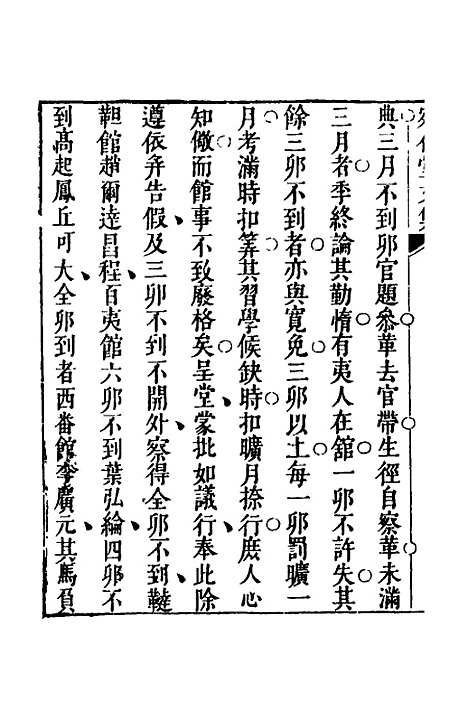 典三月不到卯官題叅革去官帶生徑自察革未滿
三月者季終論其勤惰有夷人在舘一卯不許失其
餘三卯不到者亦與寬免三卯以上每一卯罰曠一
月考滿時扣筭其習學候缺時扣曠月捺行庶人心
知儆而館事不致廢格矣呈堂蒙批如議行奉此除
遵依弁告假及三卯不到不開外察得全卯不到韃
靼館趙爾逹昌程百夷館六卯不到葉弘綸四卯不
到高起鳳丘可大全卯到者西番館李廣元其馬負